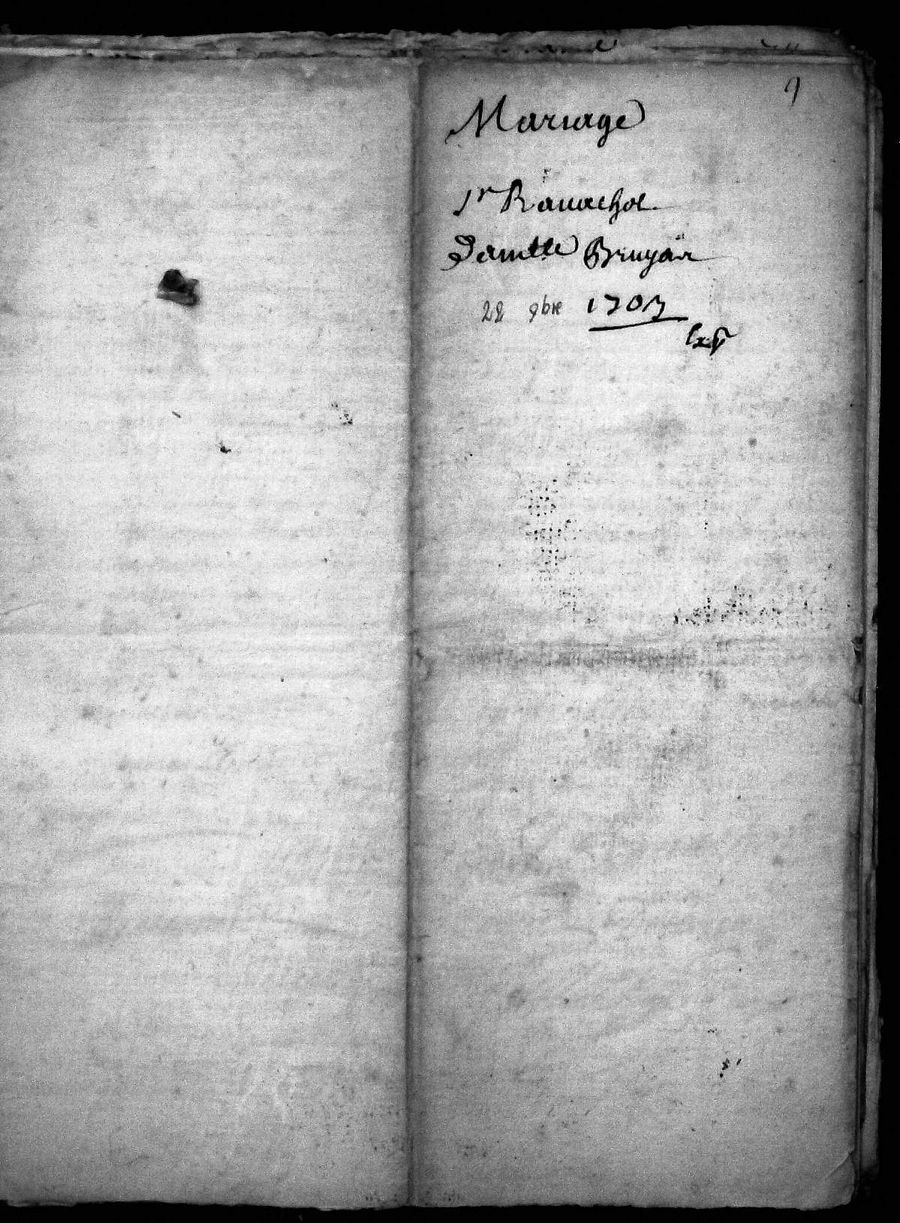 9
Mariage
Sr Rauachol
Damlle Bruyas
22 9bre 1703